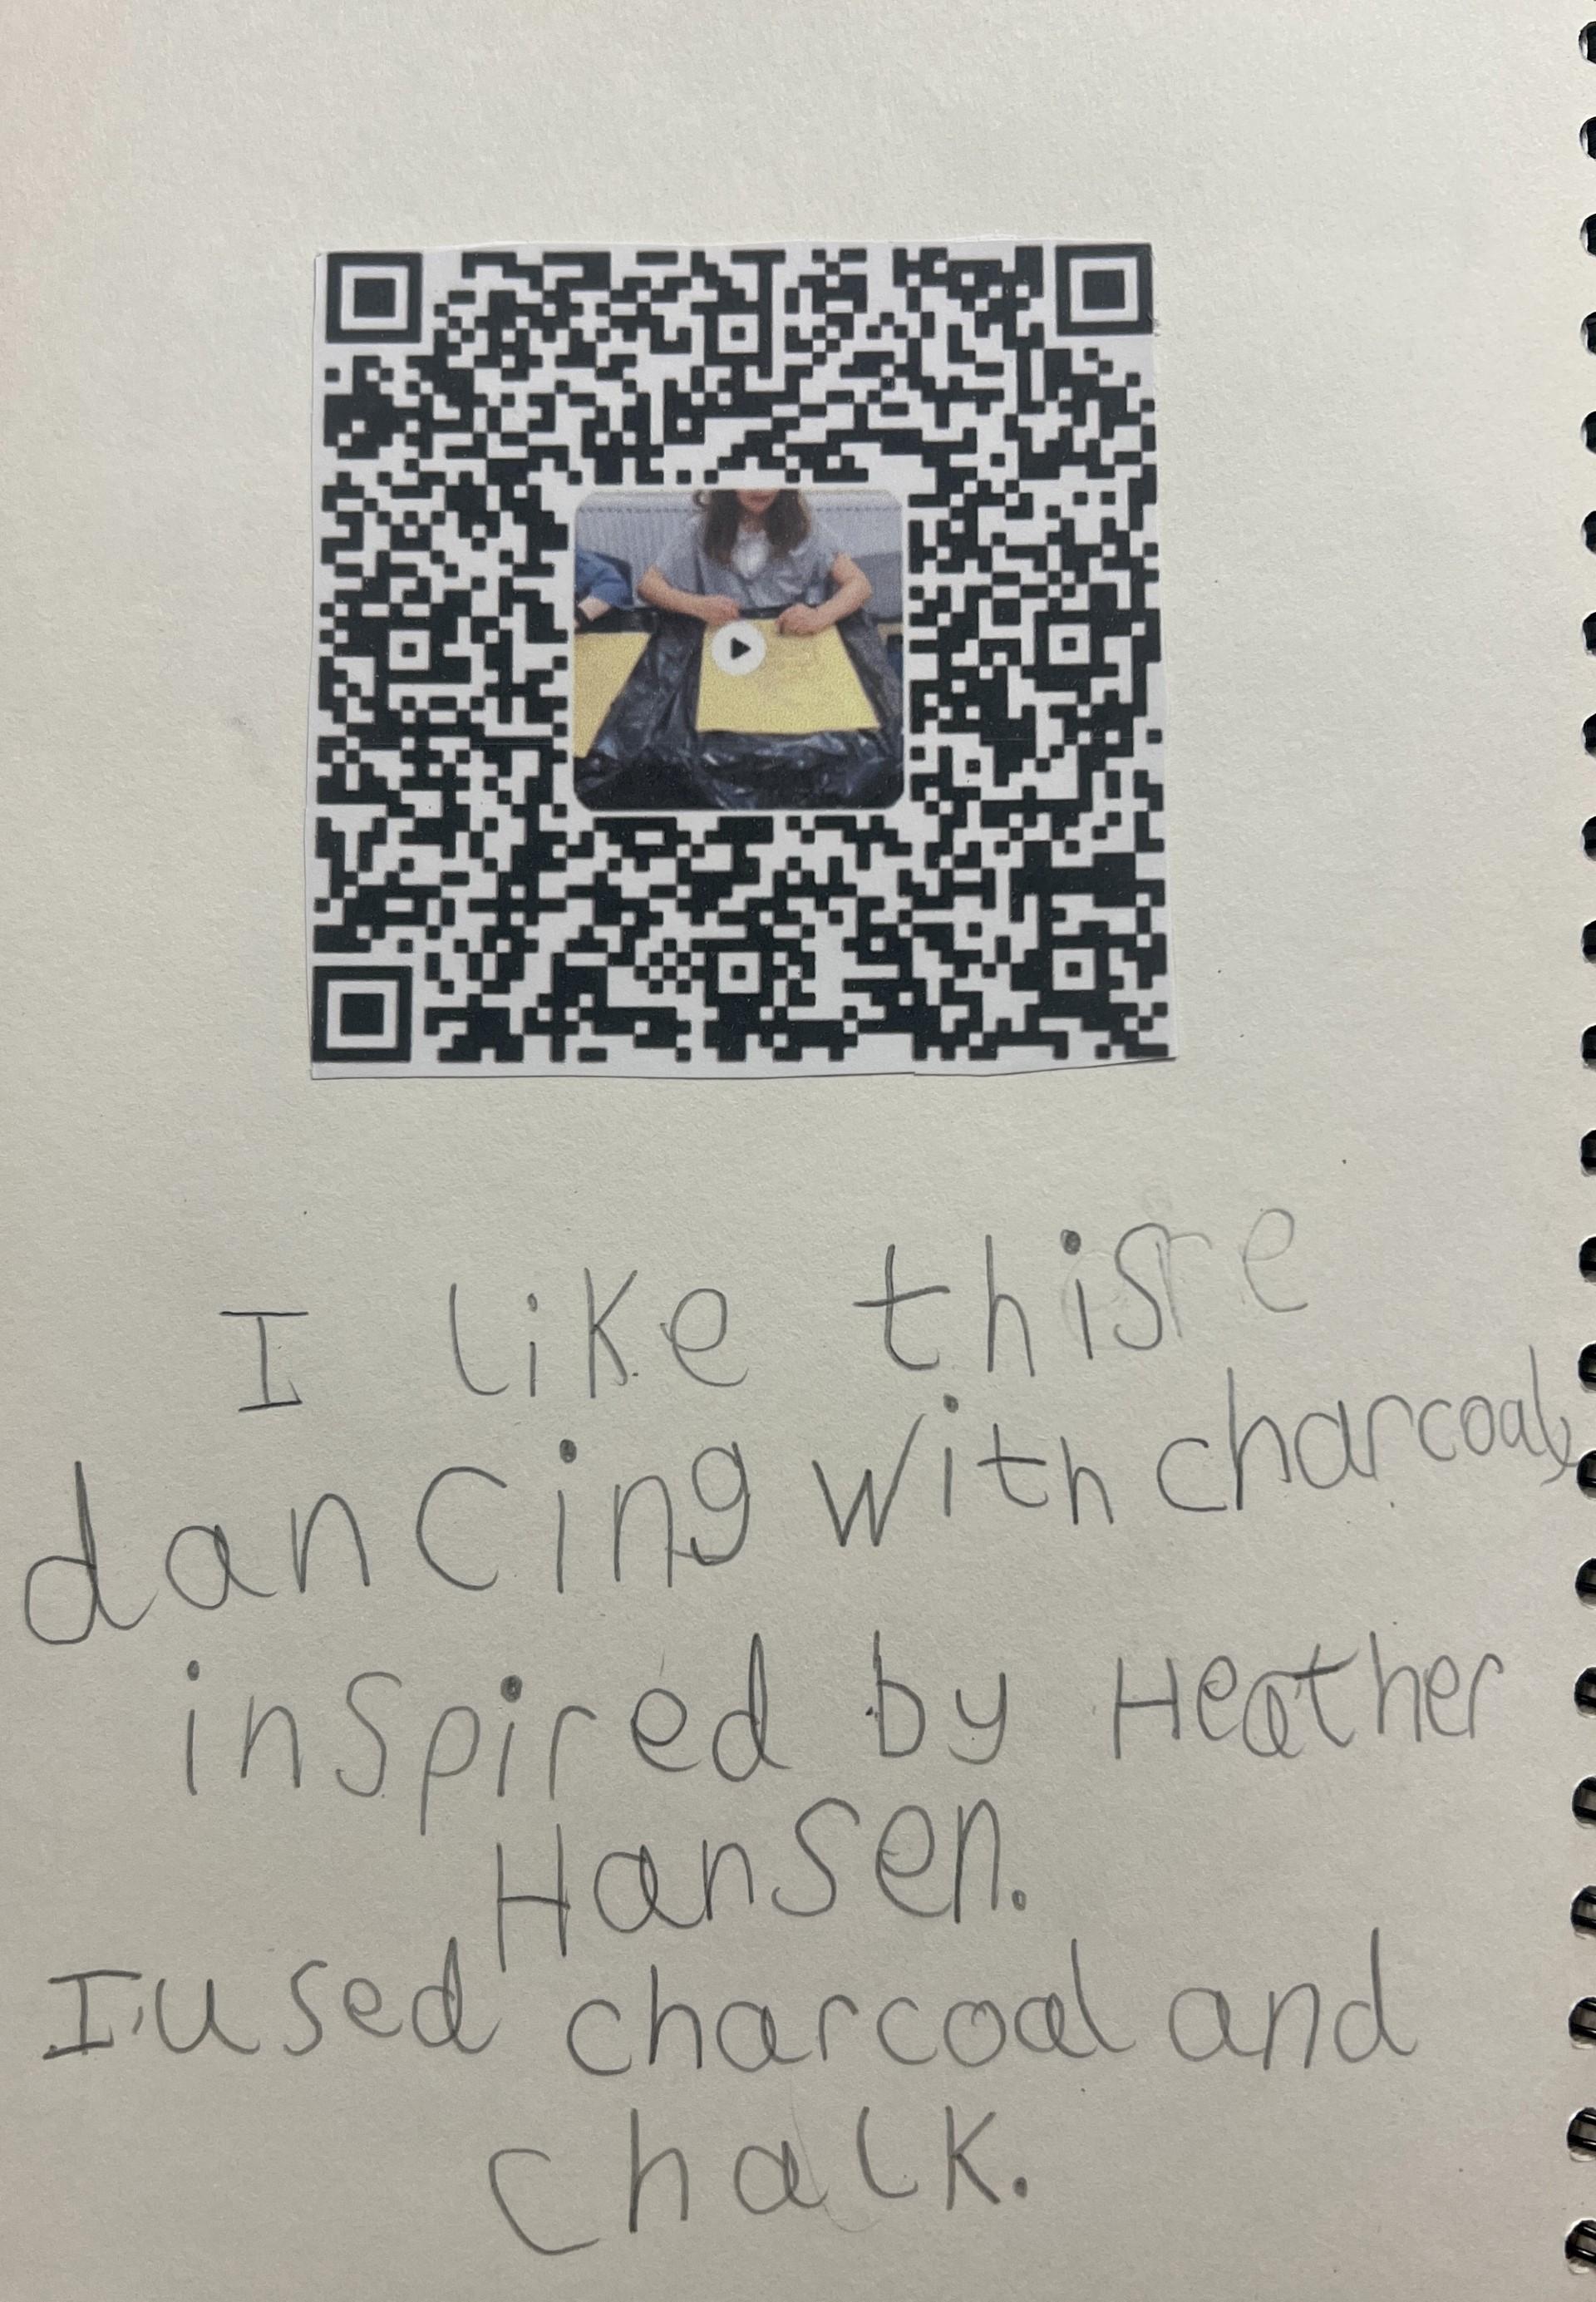 I like this
dancing with charcoal
inspired by Heather
Hansen.
I used charcoal and
chalk.